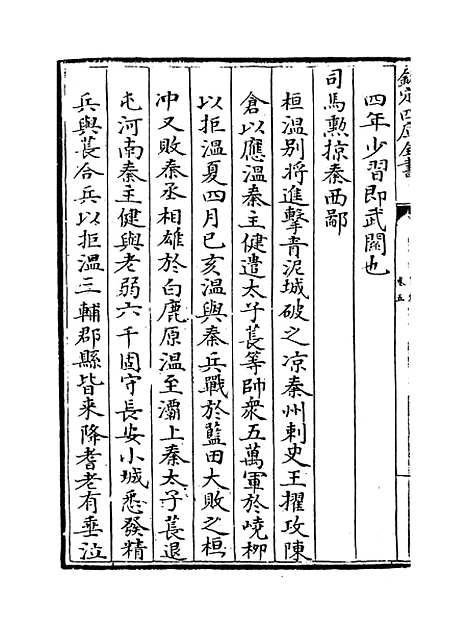 欽定四庫全書
卷五
四年少習即武關也
司馬勲掠秦西鄙
桓溫别將進擊青泥城破之凉秦州刺史王擢攻陳
倉以應溫秦主健遣太子萇等帥衆五萬軍於嶢栁
以拒溫夏四月己亥溫與秦兵戰於藍田大敗之桓
冲又敗秦丞相雄於白鹿原溫至灞上秦太子萇退
屯河南秦主健與老弱六千固守長安小城悉發精
兵與萇合兵以拒溫三輔郡縣皆来降耆老有垂泣